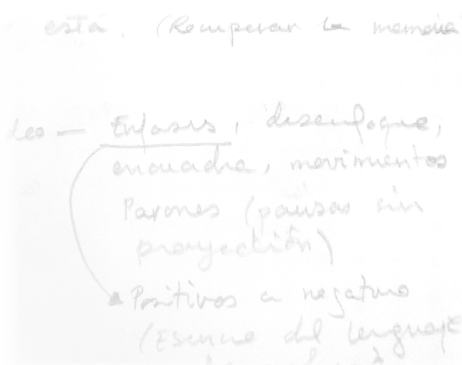 está. (Recuperar la memoria
deo — Enfasis, desenfoque,
encuadre, movimientos
Parones (pausas sin
proyección)
Positivos a negativo
(Esencia del lenguaje